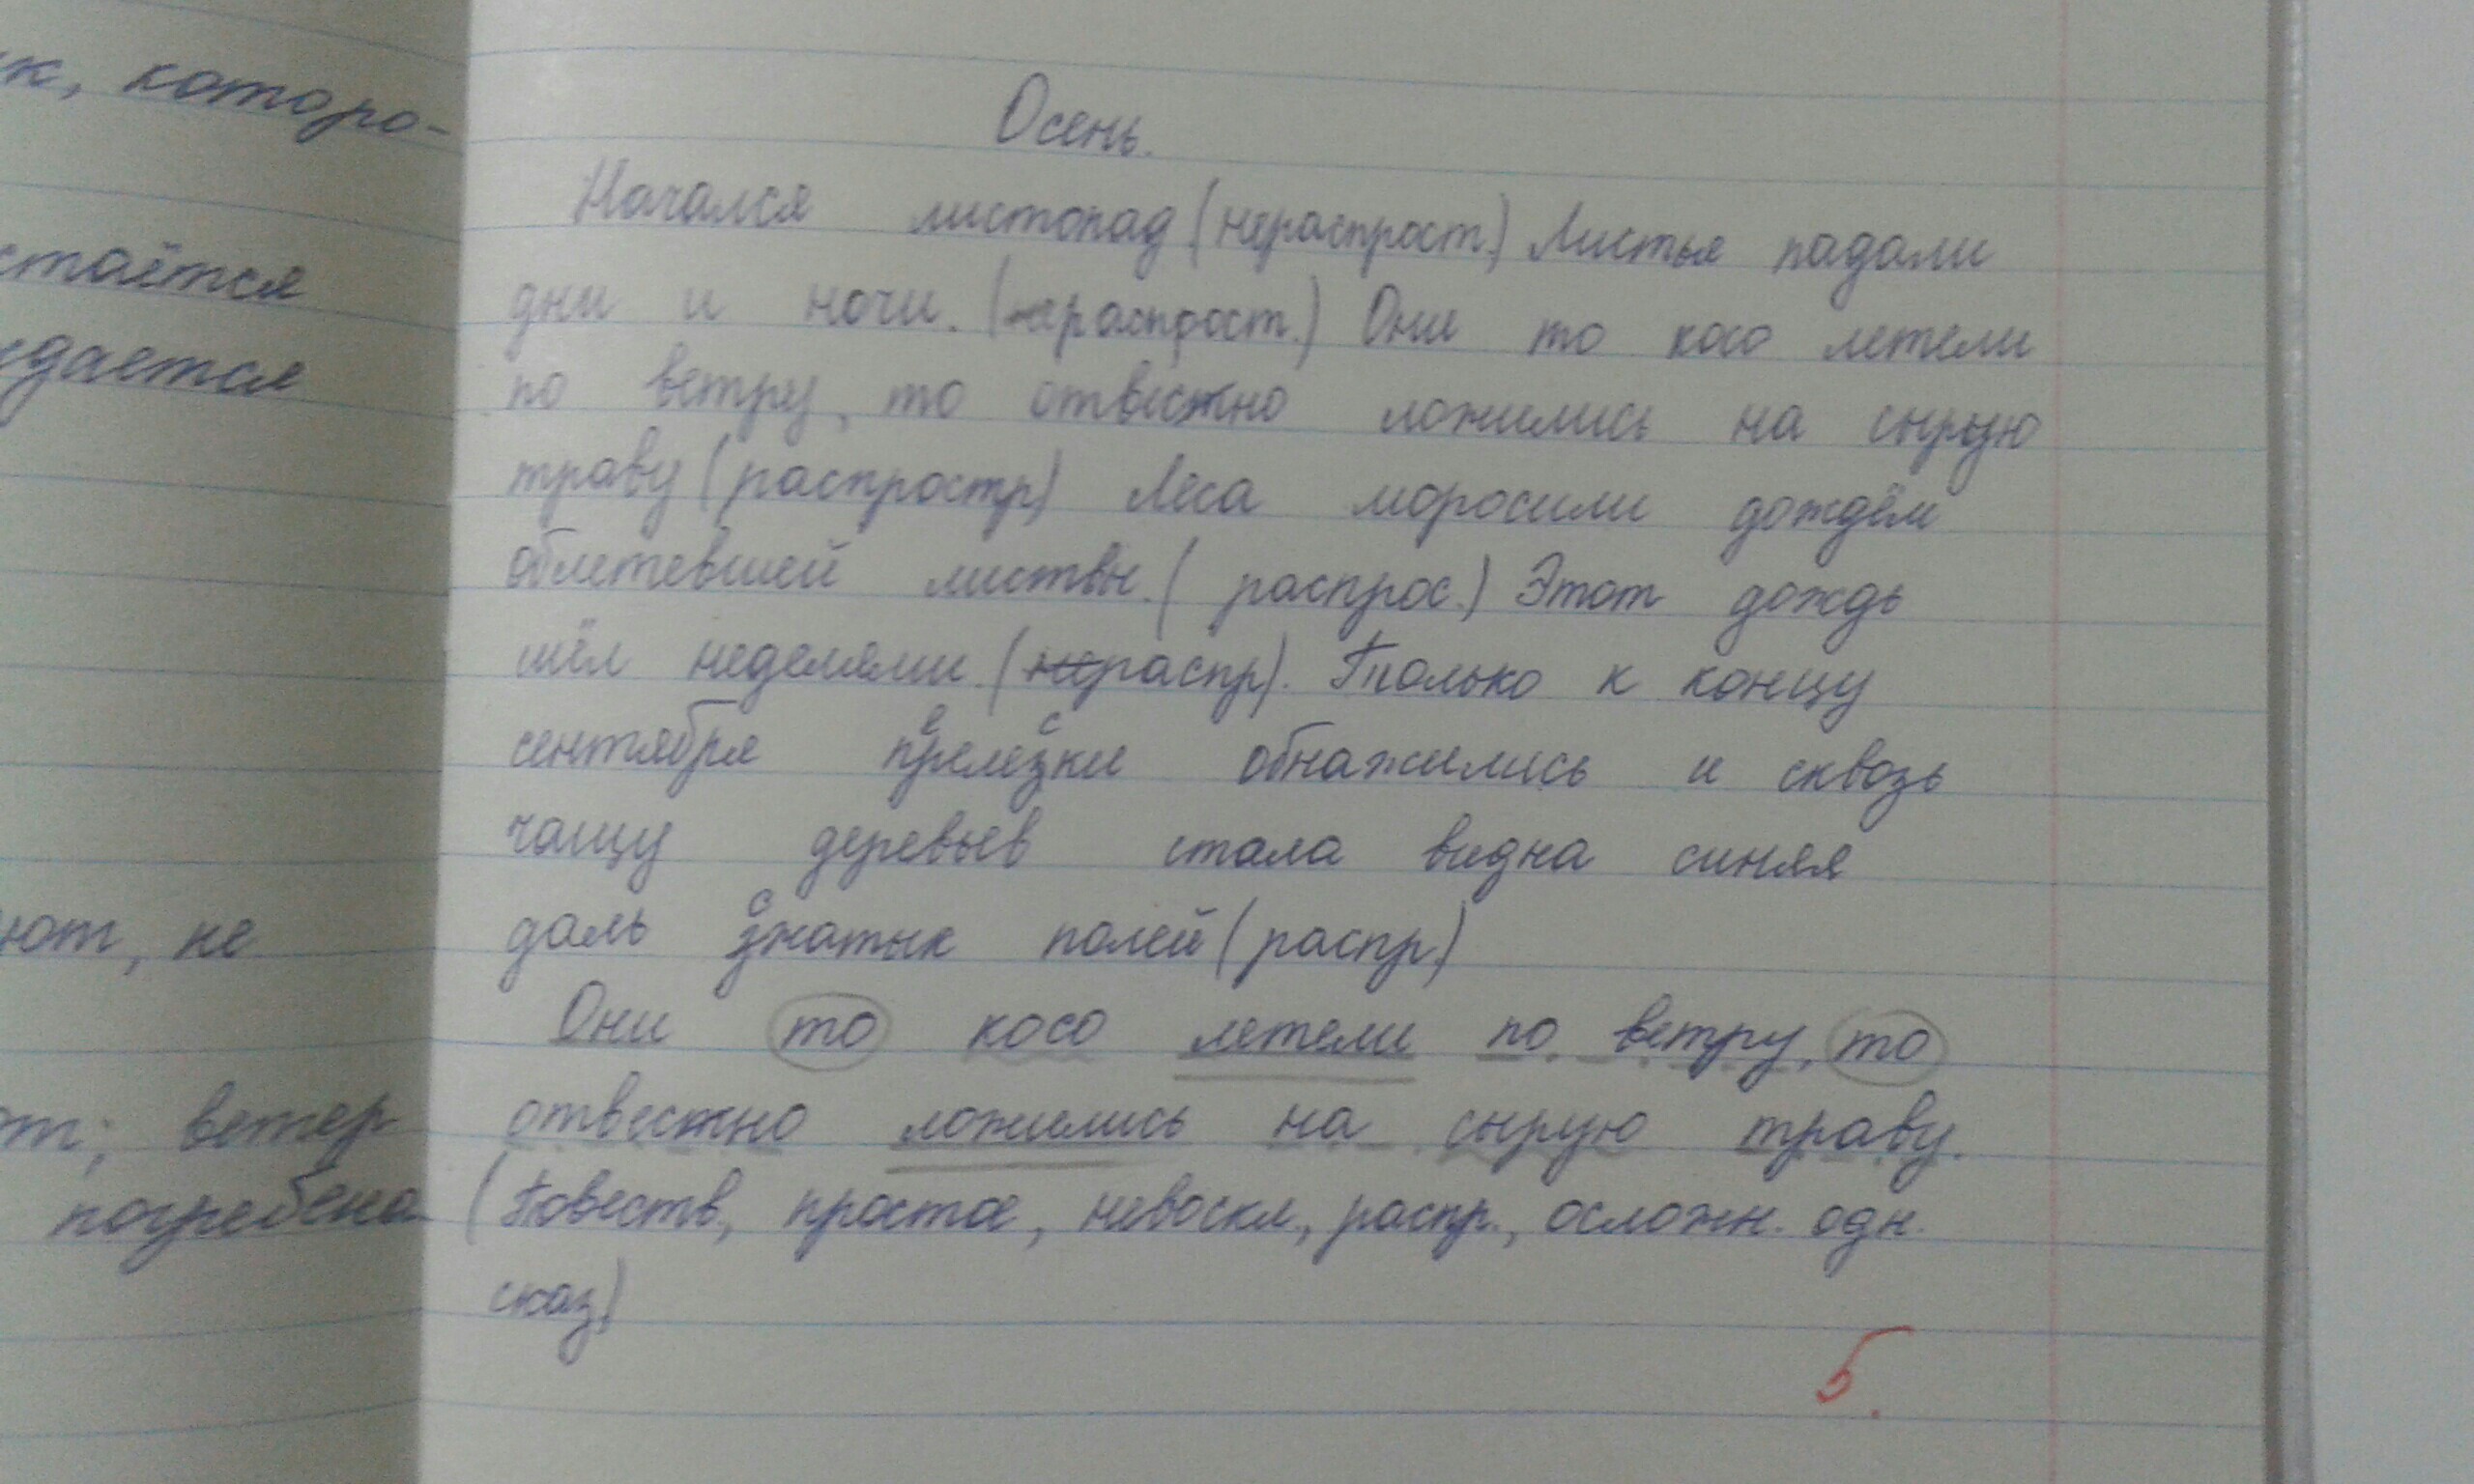 ик, которо-
стаётся
ждается
ют, не
от; ветер
погребена
Осень.
Начался листопад (нераспрост.) Листья падали
дни и ночи. (нераспрост.) Они то косо летели
по ветру, то отвестно ложились на сырую
траву (распростр) Леса моросили дождём
облетевшей листвы. (распрос.) Этот дождь
шёл неделями. (нераспр). Только к концу
сентября перелески обнажились и сквозь
чащу деревьев стала видна синяя
даль сжатык полей (распр.)
Они то косо летели по ветру, то
отвестно ложились на сырую траву.
(Повеств., простое, невоскл., распр., осложн. одн.
сказ)
5.